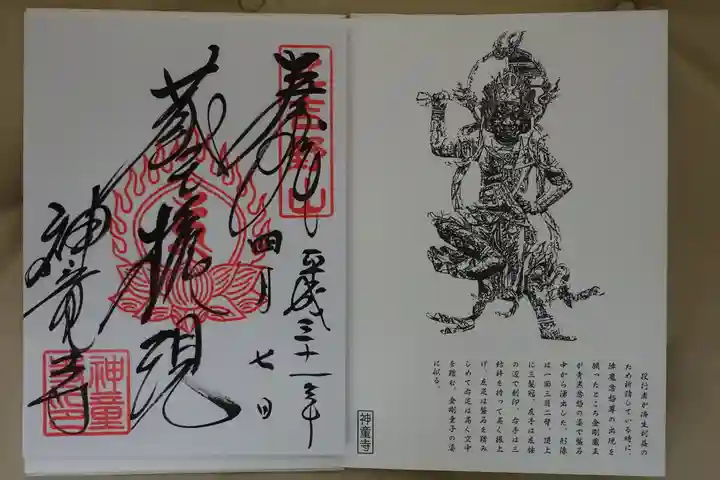 奉拝
平成三十一年
四月七日
蔵王権現
神童寺
神童
寺印
役行者が済生利益の
ため祈請している時に、
降魔忿怒尊の出現を
願ったところ金剛蔵王
が青黒忿怒の姿で磐石
中から湧出した。形像
は一面三目二臂、頂上
に三髻冠、左手は左腰
の辺で剣印、右手は三
鈷杵を持って高く振上
げ、左足は磐石を踏み
しめて右足は高く空中
を踏む。金剛童子の姿
に似る。
神童寺